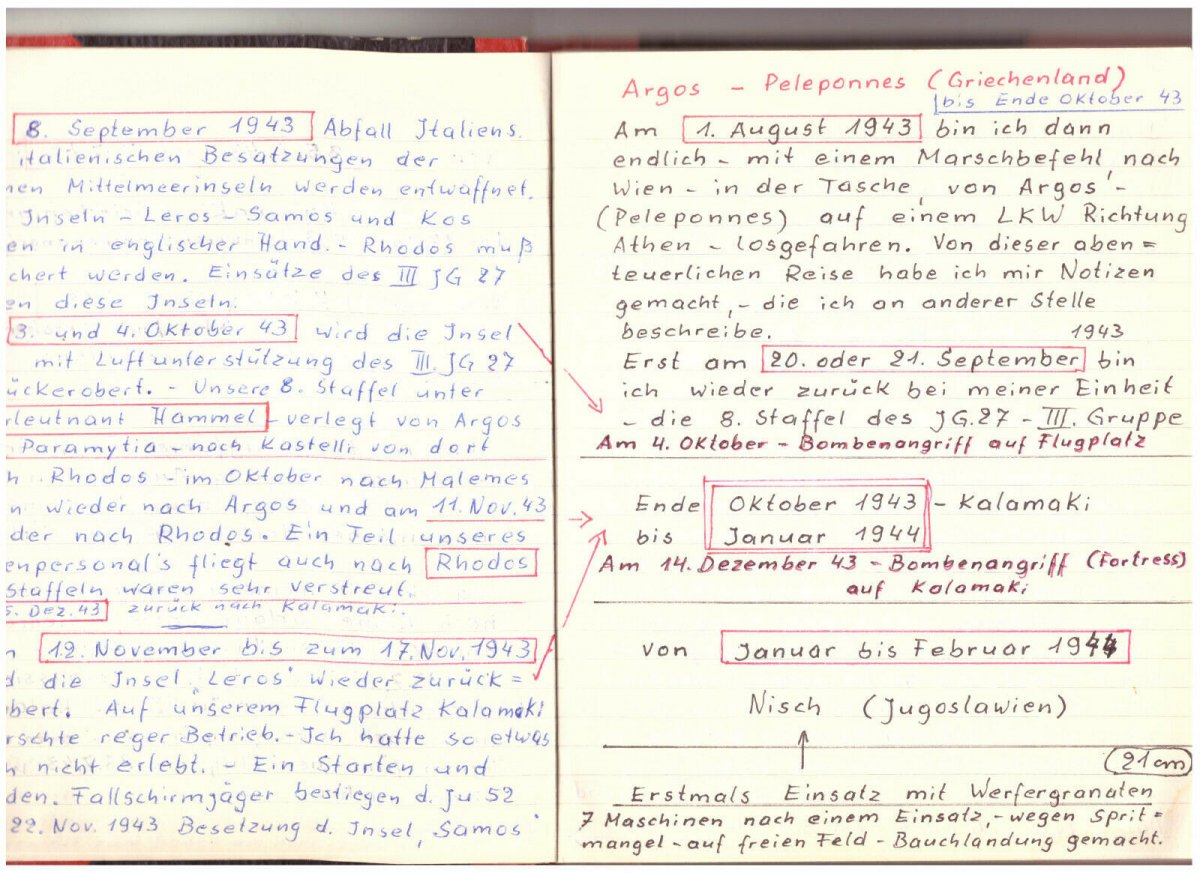 8. September 1943 Abfall Italiens.
italienischen Besatzungen der
nen Mittelmeerinseln werden entwaffnet.
Inseln - Leros - Samos und Kos
en in englischer Hand. - Rhodos muß
chert werden. Einsätze des III JG 27
en diese Inseln.
3. und 4. Oktober 43 wird die Insel
mit Luftunterstützung des III. JG 27
ückerobert. - Unsere 8. Staffel unter
rleutnant Hammel verlegt von Argos
Paramytia - nach Kastelli von dort
h Rhodos - im Oktober nach Malemes
n wieder nach Argos und am 11. Nov. 43
der nach Rhodos. Ein Teil unseres
enpersonal's fliegt auch nach Rhodos
Staffeln waren sehr verstreut.
5. Dez. 43 zurück nach Kalamaki.
n 12. November bis zum 17. Nov. 1943
d die Insel „Leros" wieder zurück =
bert. Auf unserem Flugplatz Kalamaki
rschte reger Betrieb. - Ich hatte so etwas
h nicht erlebt. - Ein Starten und
den. Fallschirmjäger bestiegen d. Ju 52
22. Nov. 1943 Besetzung d. Insel „Samos"
Argos - Peleponnes (Griechenland)
bis Ende Oktober 43
Am 1. August 1943 bin ich dann
endlich - mit einem Marschbefehl nach
Wien - in der Tasche, von Argos -
(Peleponnes) auf einem LKW Richtung
Athen - losgefahren. Von dieser aben =
teuerlichen Reise habe ich mir Notizen
gemacht, - die ich an anderer Stelle
beschreibe. 1943
Erst am 20. oder 21. September bin
ich wieder zurück bei meiner Einheit
- die 8. Staffel des JG. 27 - III. Gruppe
Am 4. Oktober - Bombenangriff auf Flugplatz
Ende Oktober 1943 - Kalamaki
bis Januar 1944
Am 14. Dezember 43 - Bombenangriff (Fortress)
auf Kalamaki
von Januar bis Februar 1944
Nisch (Jugoslawien)
(21 cm)
Erstmals Einsatz mit Werfergranaten
7 Maschinen nach einem Einsatz, - wegen Sprit =
mangel - auf freien Feld - Bauchlandung gemacht.